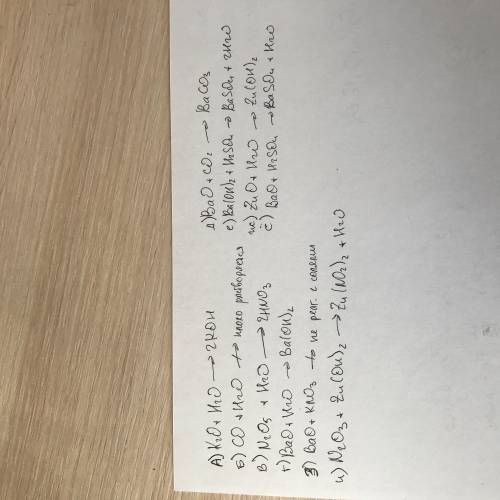 А) K2O + H2O → 2KOH
Б) CO + H2O ↛ плохо растворяется
В) N2O5 + H2O → 2HNO3
г) BaO + H2O → Ba(OH)2
З) BaO + KNO3 ↛ не реаг. с солями
и) N2O3 + Zn(OH)2 → Zn(NO2)2 + H2O
д) BaO + CO2 → BaCO3
е) Ba(OH)2 + H2SO4 → BaSO4 + 2H2O
ж) ZnO + H2O → Zn(OH)2
ё) BaO + H2SO4 → BaSO4 + H2O